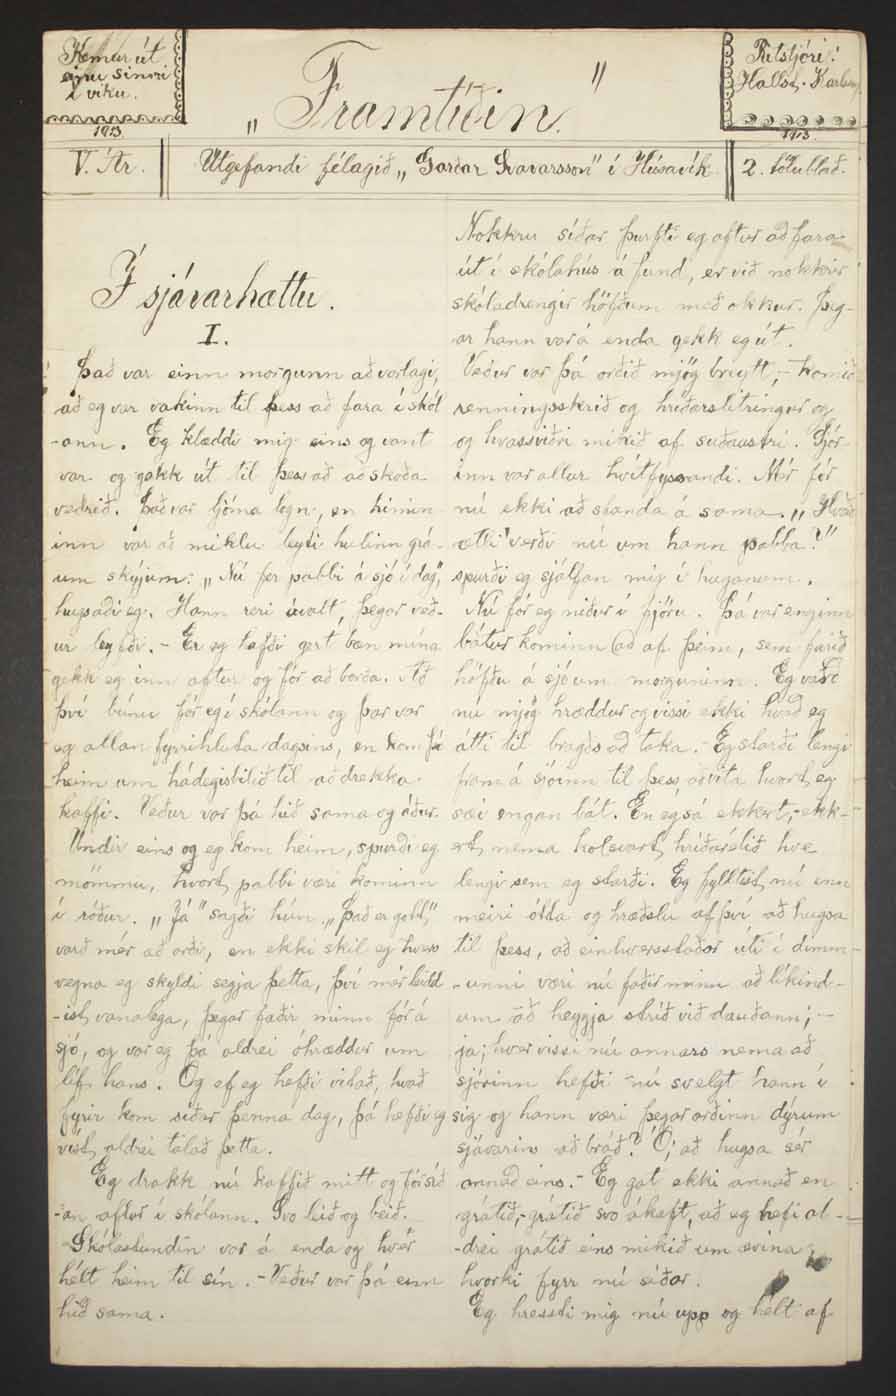 Kemur út
einu sinni
í viku.
1913.
„Framtíðin."
Ritstjóri:
Hallst. Karlss.
1913.
V. Ár.
Utgefandi félagið „Garðar Svavarsson" í Húsavík.
2. tölublað.
Í sjávarhættu.
I.
Það var einn morgunn að vorlagi,
að eg var vakinn til þess að fara í skól
-ann. Eg klæddi mig eins og vant
var og gekk út til þess að að skoða
veðrið. Það var ljóma logn, en himin-
inn var að miklu leyti hulinn grá-
um skýjum: „Nú fer pabbi á sjó í dag",
hugsaði eg. Hann reri ávalt, þegar veð-
ur leyfði. - Er eg hafði gert bæn mína
gekk eg inn aftur og fór að borða. Að
því búnu fór eg í skólann og þar var
eg allan fyrrihluta dagsins, en kom þá
heim um hádegisbilið til að drekka
kaffi. Veður var þá hið sama og áður.
Undir eins og eg kom heim, spurði eg
mömmu, hvort pabbi væri kominn
í róður. „Já" sagði hún. „Það er gott,"
varð mér að orði, en ekki skil eg hvers
vegna eg skyldi segja þetta, því mér leidd
-ist vanalega, þegar faðir minn fór á
sjó, og var eg þá aldrei óhræddur um
líf hans. Og ef eg hefði vitað, hvað
fyrir kom síðar þenna dag, þá hefði eg
víst aldrei talað þetta.
Eg drakk nú kaffið mitt og fór síð
-an aftur í skólann. Svo leið og beið.
Skólastundin var á enda og hver
hélt heim til sín. - Veður var þá enn
hið sama.
Nokkru síðar þurfti eg aftur að fara
út í skólahús á fund, er við nokkrir
skóladrengir höfðum með okkur. Þeg-
ar hann var á enda gekk eg út.
Veður var þá orðið mjög breytt, - komið
renningsskrið og hríðarslitringur og
og hvassviðri mikið af suðaustri. Sjór-
inn var allur hvítfyssandi. Mér fór
nú ekki að standa á sama. „Hvað
ætli verði nú um hann pabba?"
spurði eg sjálfan mig í huganum.
Nú fór eg niður í fjöru. Þá var enginn
bátur kominn að af þeim, sem farið
höfðu á sjó um morguninn. Eg varð
nú mjög hræddur og vissi ekki hvað eg
átti til bragðs að taka. - Eg starði lengi
fram á sjóinn til þess að vita hvort eg
sæi engan bát. En eg sá ekkert, - ekk-
ert nema kolsvart hríðarélið hve
lengi sem eg starði. Eg fylltist nú enn
meiri ótta og hræðslu af því að hugsa
til þess, að einhversstaðar úti í dimm-
-unni væri nú faðir minn að líkind-
um að heyja stríð við dauðann; -
ja; hver vissi nú annars nema að
sjórinn hefði nú svelgt hann í
sig og hann væri þegar orðinn dýrum
sjávarins að bráð? Ó, að hugsa sér
annað eins. - Eg gat ekki annað en
grátið, - grátið svo ákaft, að eg hefi al-
-drei grátið eins mikið um ævina,
hvorki fyrr né síðar.
Eg hressti mig nú upp og hélt af